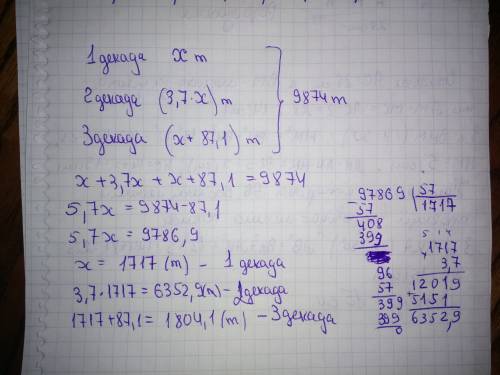 1 декада x т
2 декада (3,7·x) т
3 декада (x + 87,1) т
9874 т
x + 3,7x + x + 87,1 = 9874
5,7x = 9874-87,1
5,7x = 9786,9
x = 1717 (т) - 1 декада
3,7·1717=6352,9(т)-2декада
1717+87,1= 1804,1 (т) -3декада
97869 57
57 1717
408
399
96
57
399
399
0
5 4
4
1717
3,7
12019
+5151
6352,9